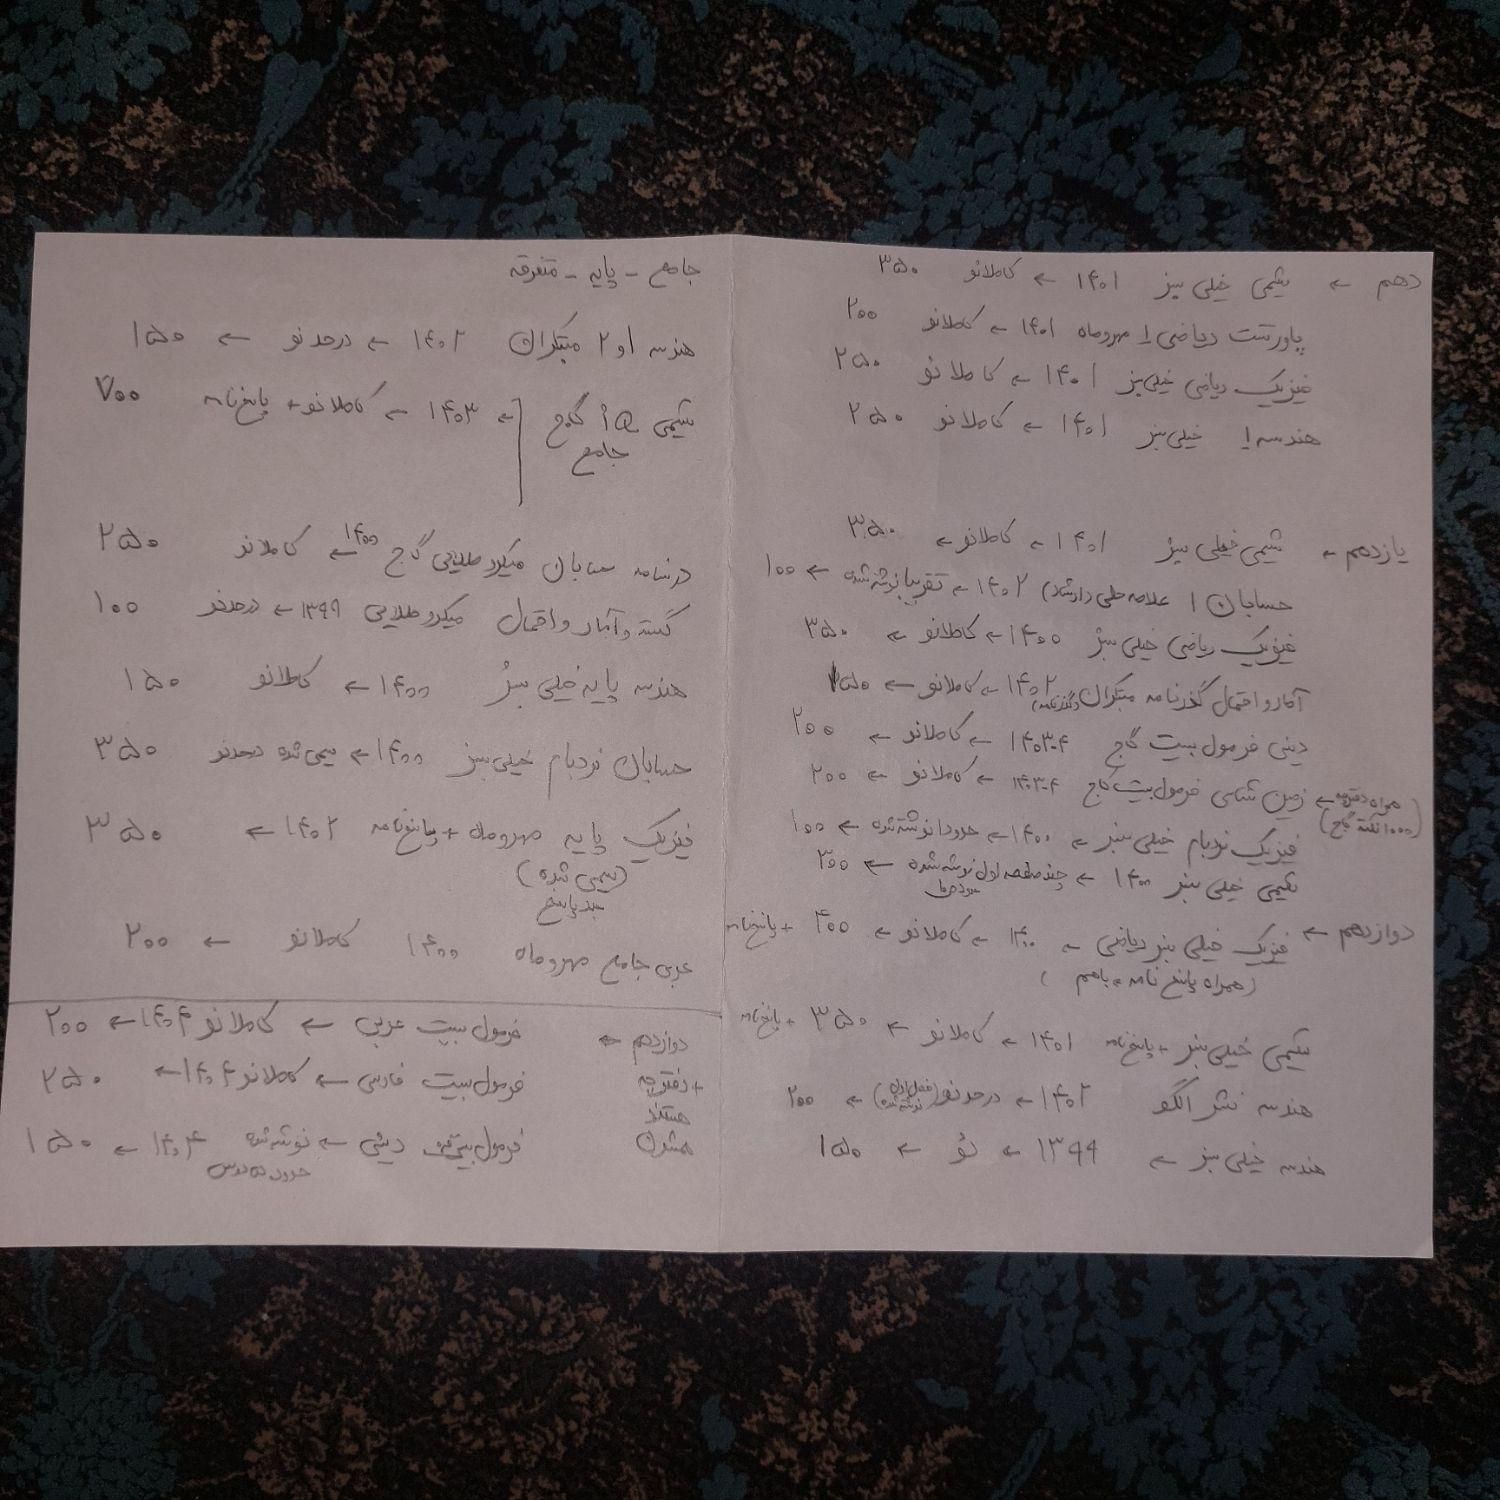 دهم ← شیمی خیلی سبز ۱۴۰۱ ← کاملا نو ۳۵۰
پاورتست ریاضی ۱ مهروماه ۱۴۰۱ ← کاملا نو ۲۰۰
فیزیک ریاضی خیلی سبز ۱۴۰۱ ← کاملا نو ۲۵۰
هندسه ۱ خیلی سبز ۱۴۰۱ ← کاملا نو ۲۵۰
یازدهم ← شیمی خیلی سبز ۱۴۰۱ ← کاملا نو ← ۳۵۰
حسابان ۱ علامه حلی (دارشاد) ۱۴۰۲ ← تقریبا نوشته شده ← ۱۰۰
فیزیک ریاضی خیلی سبز ۱۴۰۰ ← کاملا نو ← ۳۵۰
آمار و احتمال گذرنامه مبتکران (گذرنامه) ۱۴۰۲ ← کاملا نو ← ۱۵۰
دینی فرمول بیست گاج ۱۴۰۳-۴ ← کاملا نو ← ۲۰۰
(همراه دفترچه ۱۰۰۰ نکته گاج) ← زمین شناسی فرمول بیست گاج ۱۴۰۳-۴ ← کاملا نو ← ۲۰۰
فیزیک نردبام خیلی سبز ← ۱۴۰۰ ← حدودا نوشته شده ← ۱۰۰
شیمی خیلی سبز ۱۴۰۰ ← چند صفحه اول نوشته شده ← ۳۰۰
دوازدهم ← فیزیک خیلی سبز ریاضی ← ۱۴۰۰ ← کاملا نو ← ۴۰۰ + پاسخ نامه
(همراه پاسخ نامه ← باهم)
شیمی خیلی سبز + پاسخ نامه ۱۴۰۱ ← کاملا نو ← ۳۵۰ + پاسخ نامه
هندسه نشر الگو ۱۴۰۲ ← در حد نو (فصل اول نوشته شده) ← ۲۰۰
هندسه خیلی سبز ← ۱۳۹۹ ← نو ← ۱۵۰
جامع - پایه - متفرقه
هندسه ۱ و ۲ مبتکران ۱۴۰۲ ← در حد نو ← ۱۵۰
شیمی گاج جامع ← ۱۴۰۳ ← کاملا نو + پاسخ نامه ۷۰۰
درسنامه حسابان میکرو طلایی گاج ۱۴۰۰ ← کاملا نو ۲۵۰
گسسته و آمار و احتمال میکرو طلایی ۱۳۹۹ ← در حد نو ۱۰۰
هندسه پایه خیلی سبز ۱۴۰۰ ← کاملا نو ۱۵۰
حسابان نردبام خیلی سبز ۱۴۰۰ ← سیمی شده در حد نو ۳۵۰
فیزیک پایه مهروماه + پاسخ نامه ۱۴۰۲ ← ۳۵۰
(سیمی شده)
عربی جامع مهروماه ۱۴۰۰ کاملا نو ← ۲۰۰
دوازدهم ← فرمول بیست عربی ← کاملا نو ۱۴۰۴ ← ۲۰۰
+ دفترچه فرمول بیست فارسی ← کاملا نو ۱۴۰۴ ← ۲۵۰
هستند
همشون فرمول بیست دینی ← نوشته شده ۱۴۰۴ ← ۱۵۰
حدود ده درس